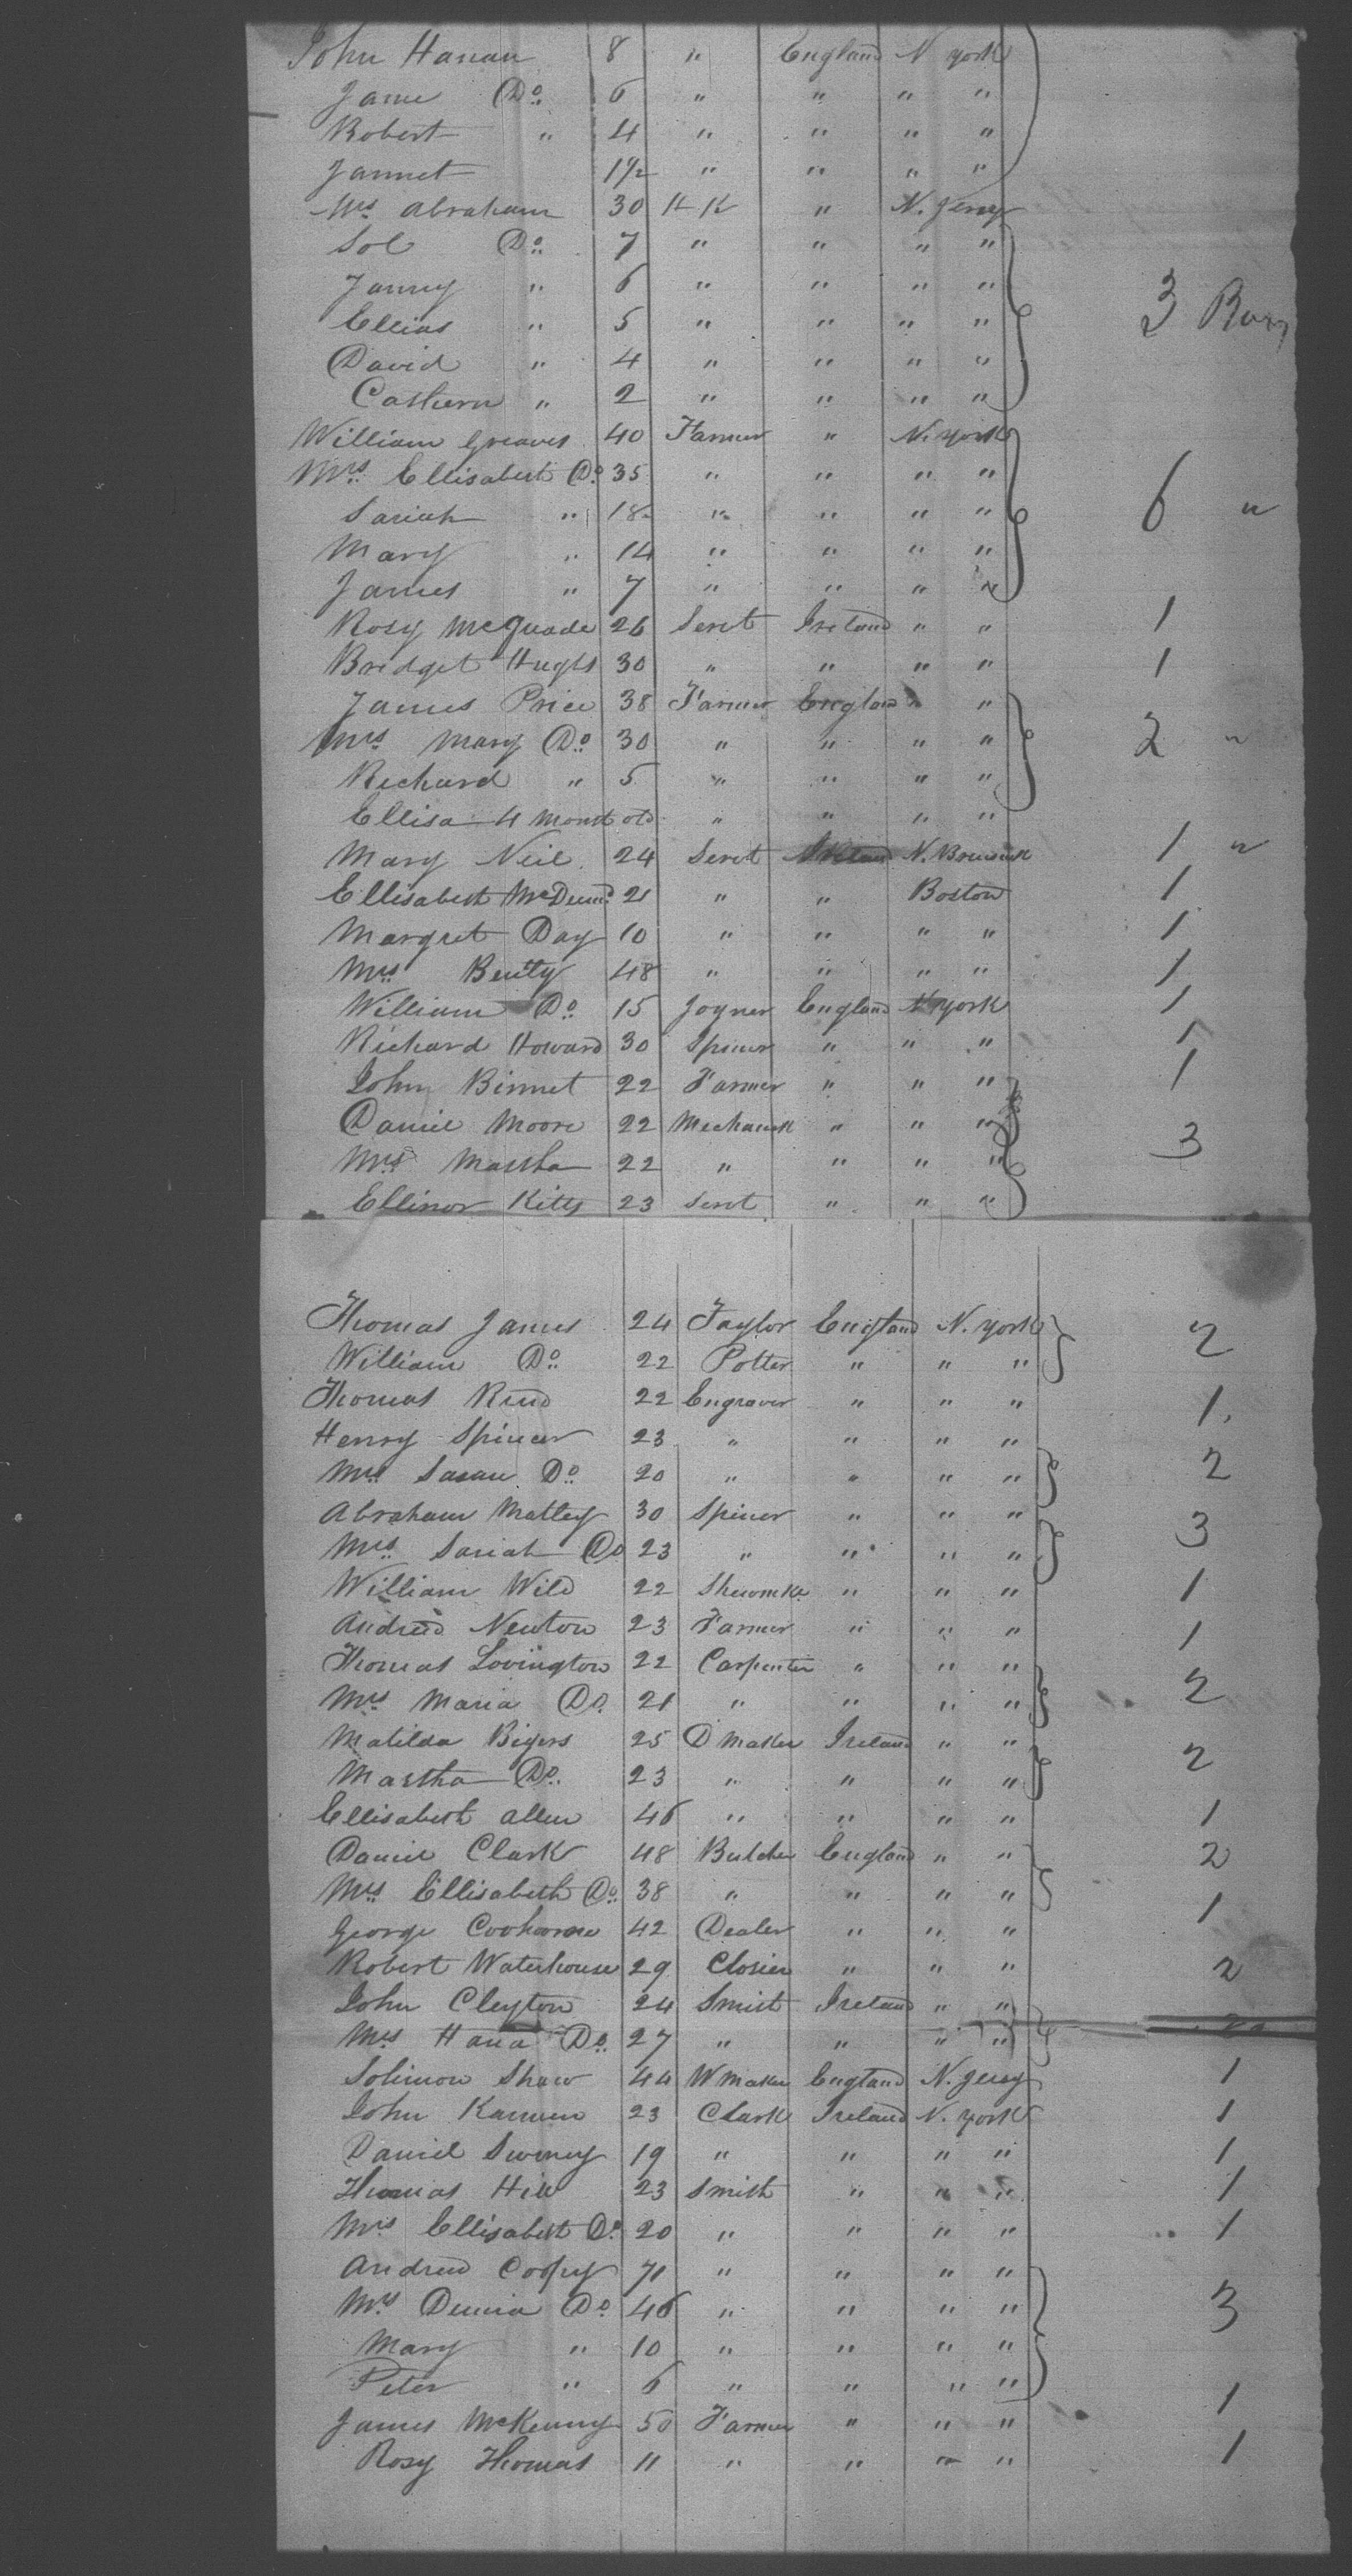 John Hanan 8 " England N York
Jane Do 6 " " " "
Robert " 4 " " " "
Jannet 1 1/2 " " " "
Mrs Abraham 30 H K " N. Jersey
Sol Do 7 " " " "
Janny " 6 " " " "
Ellias " 5 " " " " 3
David " 4 " " " "
" 2 " " " "
William Greaves 40 Farmer " N. York
Mrs Ellisabeth Do 35 " " " "
Sariah " 18 " " " " 6 "
Mary " 14 " " " "
James " 7 " " " "
Rosy McQuade 26 Servt Ireland " " 1
Bridget Hughs 30 " " " " 1
James Price 38 Farmer England " "
Mrs Mary Do 30 " " " " 2 "
Richard " 5 " " " "
Ellisa 4 Month old " " " "
Mary Neil 24 Servt Ireland N. Brunswick 1 "
Ellisabeth 21 " " Boston 1
Margret Day 10 " " " " 1
Mrs Beuty 48 " " " " 1
William Do 15 Joyner England N York 1
Richard Howard 30 Spiner " " " 1
John Binnet 22 Farmer " " " 1
Daniel Moore 22 Mechanick " " "
Mrs Martha 22 " " " " 3
Ellinor Kitts 23 Servt " " "
Thomas James 24 Taylor England N. York 2
William Do 22 Potter " " "
Thomas 22 Engraver " " " 1.
Henry Spincer 23 " " " "
Mrs Susan Do 20 " " " " 2
Abraham Matley 30 Spiner " " "
Mrs Sariah Do 23 " " " " 3
William Wild 22 " " " 1
Andrew Newton 23 Farmer " " " 1
Thomas Lovington 22 Carpenter " " "
Mrs Maria Do 21 " " " " 2
Matilda Bigers 25 D Maker Ireland " "
Martha Do. 23 " " " " 2
Ellisabeth Allen 46 " " " " 1
Daniel Clark 48 Butcher England " " 2
Mrs Ellisabeth Do 38 " " " "
George 42 Dealer " " " 1
Robert Waterhouse 29 " " " 2
John Cleyton 24 Smith Ireland " "
Mrs Hana Do 27 " " " "
Solimon Shaw 44 W Maker England N. Jersey 1
John 23 Clark Ireland N. York 1
Daniel Swiney 19 " " " " 1
Thomas Hill 23 Smith " " " 1
Mrs Ellisabeth Do 20 " " " " 1
Andrew 71 " " " "
Mrs Do 46 " " " " 3
Mary " 10 " " " "
Peter " 6 " " " "
James McKenny 50 Farmer " " " 1
Rosy Thomas 11 " " " " 1